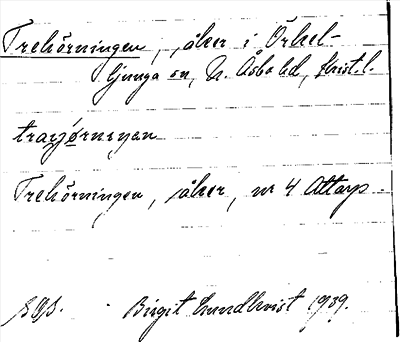 Trehörningen, åker i Örkel-
ljunga sn, N. Åsbo hd, Krist. l.
Trehörningen, åker, nr 4 Attarp.
Birgit Lundkvist 1939.